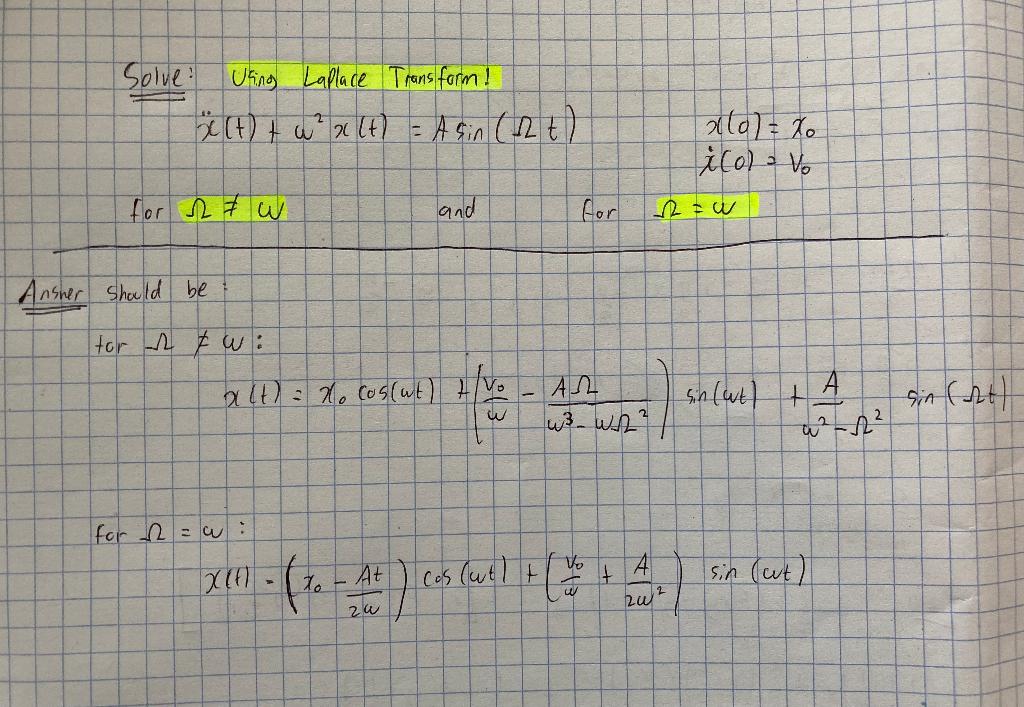 Solve: Using Laplace Transform!
ẍ(t) + ω² x(t) = A sin(Ωt) x(0) = x₀
ẋ(0) = v₀
for Ω ≠ ω and for Ω = ω
Answer should be:
for Ω ≠ ω:
x(t) = x₀ cos(ωt) + (v₀/ω - AΩ/(ω³ - ωΩ²)) sin(ωt) + A/(ω² - Ω²) sin(Ωt)
for Ω = ω:
x(t) = (x₀ - At/2ω) cos(ωt) + (v₀/ω + A/2ω²) sin(ωt)